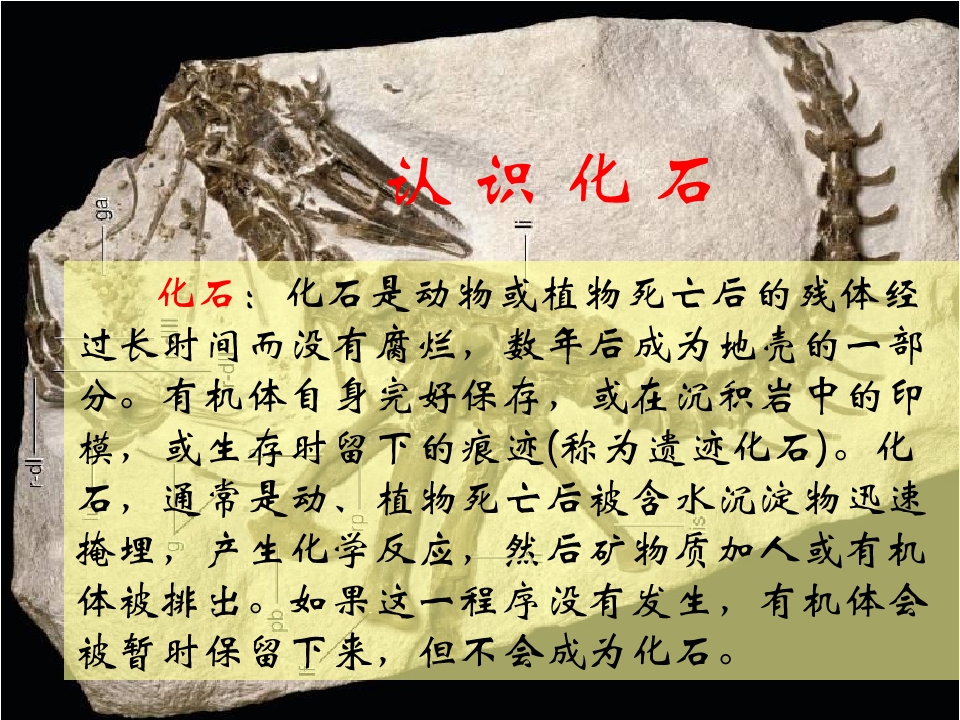 认识化石
化石：化石是动物或植物死亡后的残体经
过长时间而没有腐烂，数年后成为地壳的一部
分。有机体自身完好保存，或在沉积岩中的印
模，或生存时留下的痕迹(称为遗迹化石)。化
石，通常是动、植物死亡后被含水沉淀物迅速
掩埋，产生化学反应，然后矿物质加人或有机
体被排出。如果这一程序没有发生，有机体会
被暂时保留下来，但不会成为化石。
ga
il
r-dl
r-dll
g
rp
is
pb